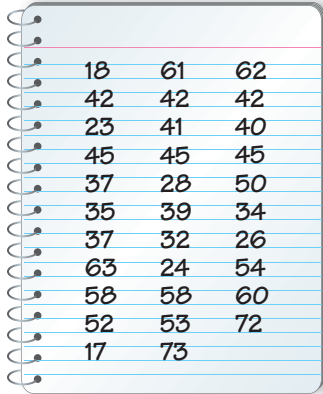 18 61 62
42 42 42
23 41 40
45 45 45
37 28 50
35 39 34
37 32 26
63 24 54
58 58 60
52 53 72
17 73